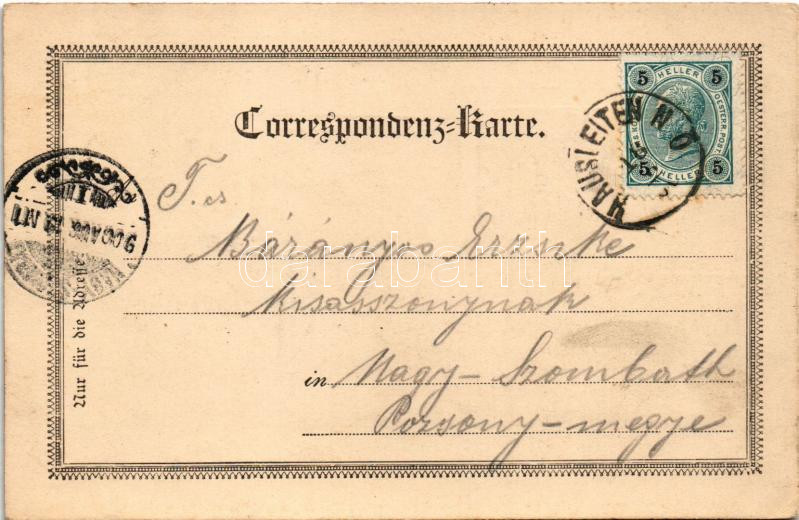 Correspondenz-Karte.
5 HELLER 5
OESTERR. POST.
5 HELLER 5
HAUSLEITEN N.Ö
T. cs
Bárányos Erzsike
kisasszonynak
in Nagy-Szombath
Pozsony-megye
Nur für die Adresse
900 AUG
darabanth